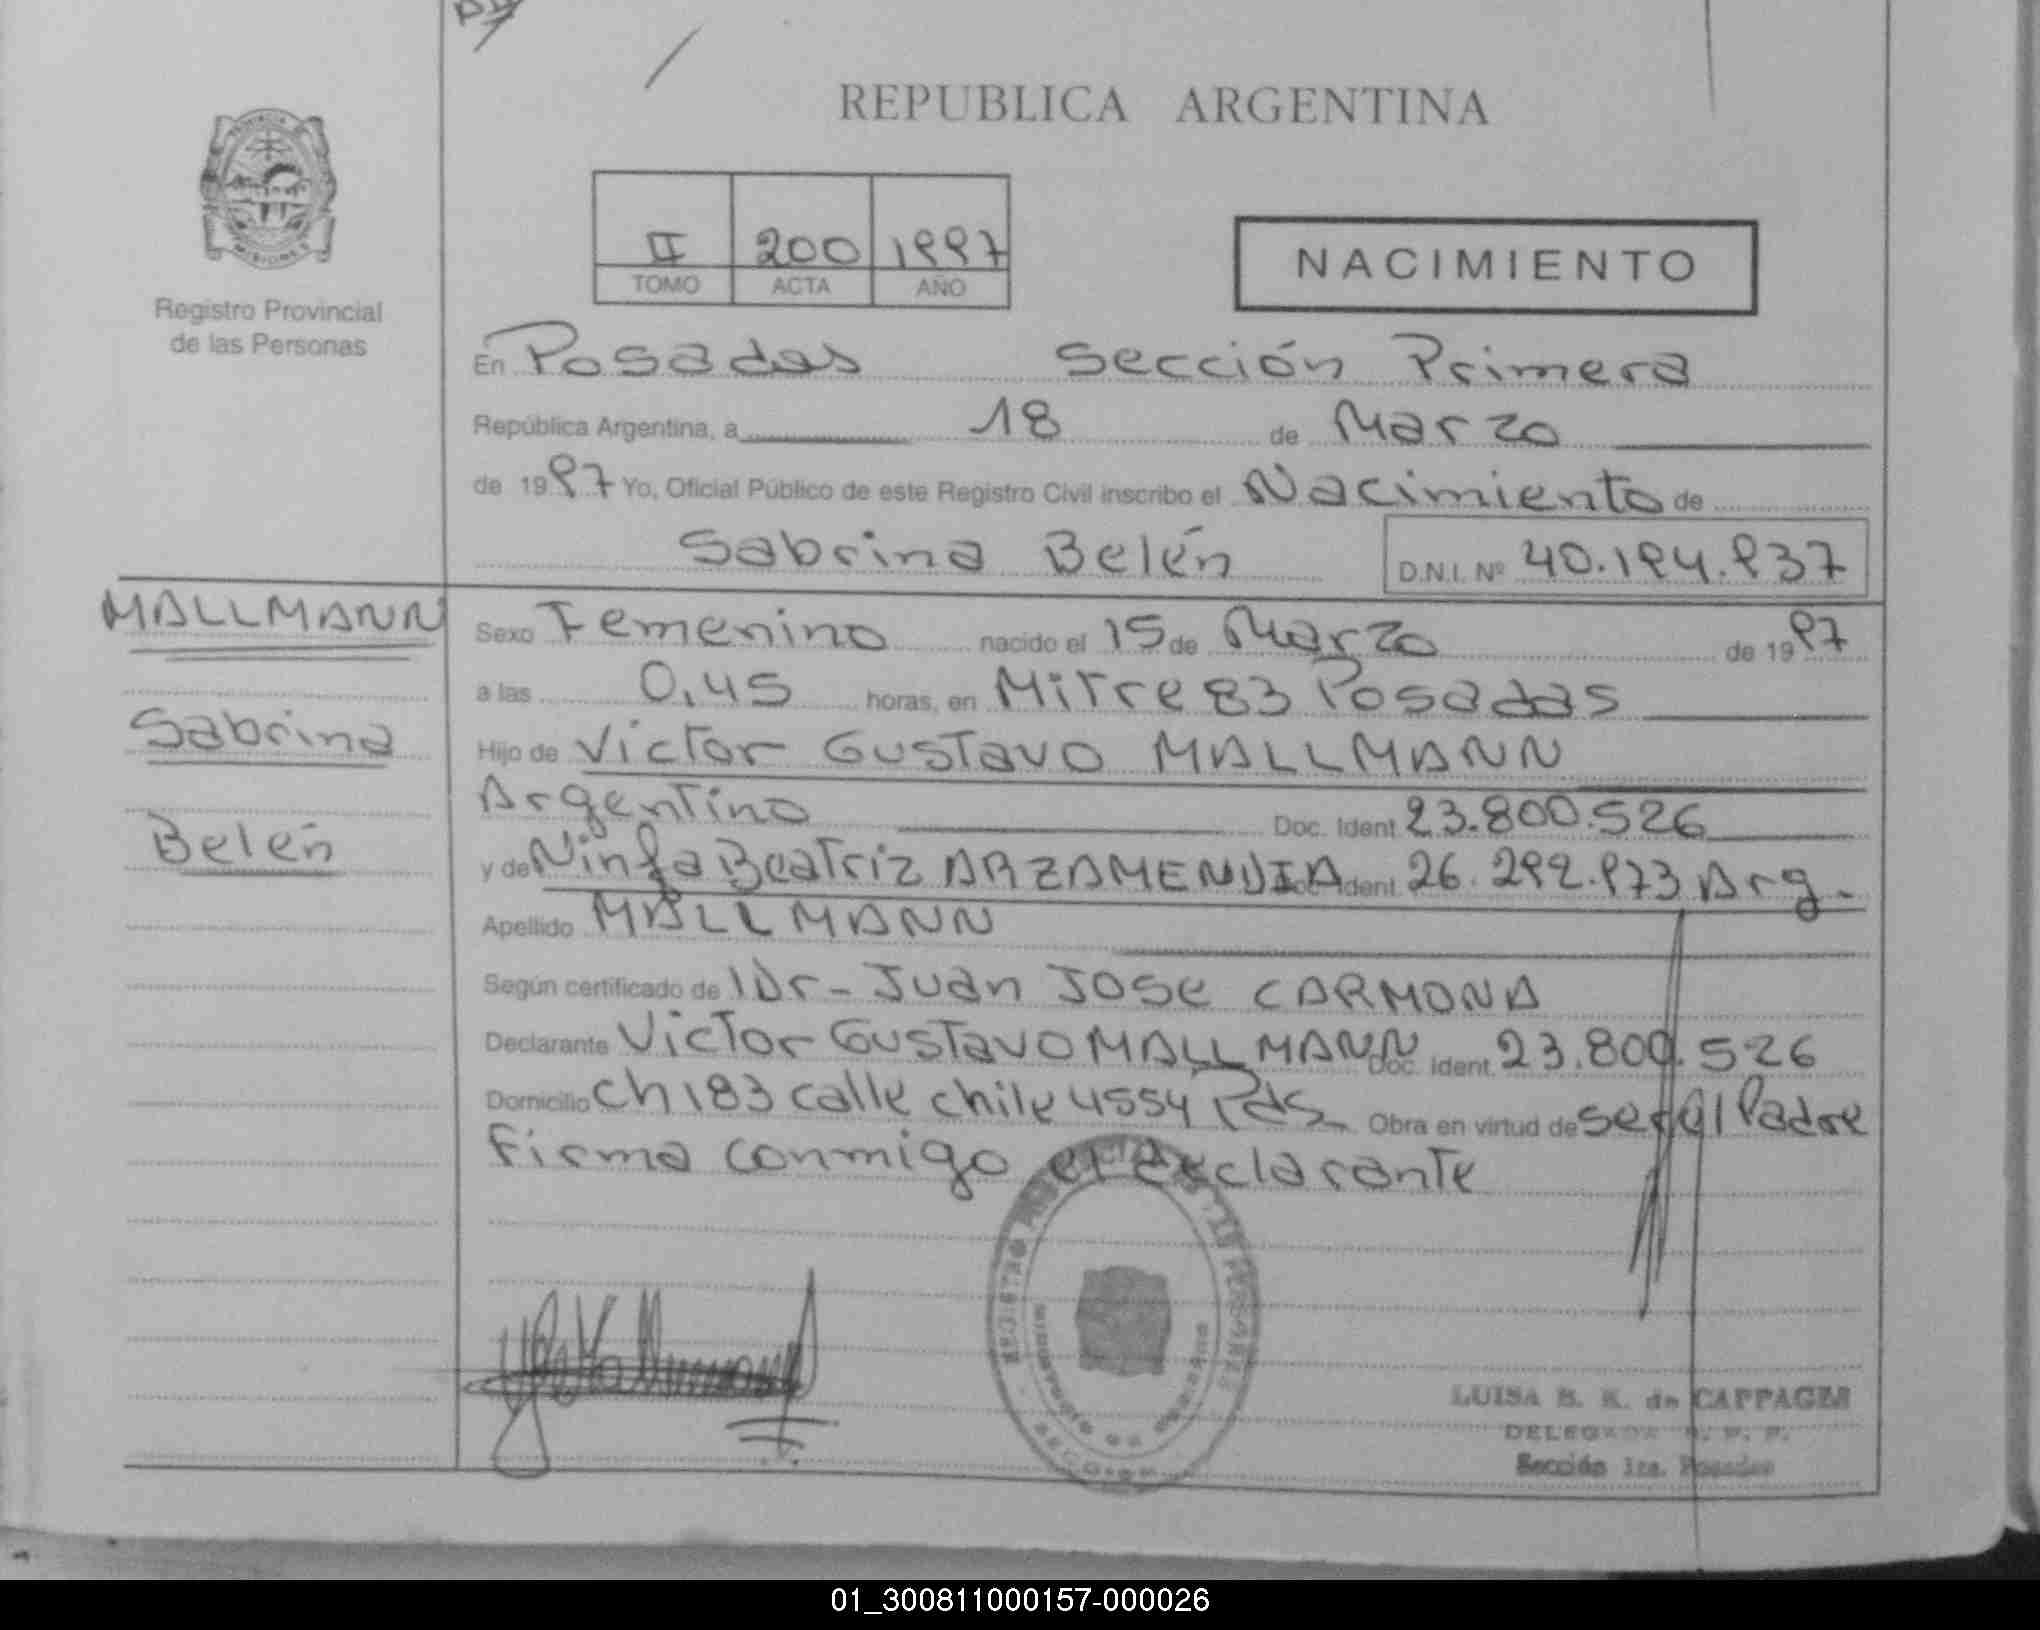 REPUBLICA ARGENTINA
Registro Provincial
de las Personas
II 200 1997
TOMO ACTA AÑO
NACIMIENTO
En Posadas Sección Primera
República Argentina, a 18 de Marzo
de 1997 Yo, Oficial Público de este Registro Civil inscribo el Nacimiento de
Sabrina Belén D.N.I. Nº 40.194.937
MALLMANN
Sabrina
Belén
Sexo Femenino nacido el 15 de Marzo de 1997
a las 0,45 horas, en Mitre 83 Posadas
Hijo de Victor Gustavo MALLMANN
Argentino Doc. Ident 23.800.526
y de Ninfa Beatriz ARZAMENDIA Doc. Ident 26.292.973 Arg.
Apellido MALLMANN
Según certificado de Dr- Juan Jose CARMONA
Declarante Victor Gustavo MALLMANN Doc. Ident. 23.800.526
Domicilio Ch 183 calle chile 4554 Pds. Obra en virtud de ser el Padre
Firma conmigo el declarante
LUISA B. K. de CAPPAGLI
DELEGADA R. P. P.
Sección 1ra. Posadas
01_300811000157-000026